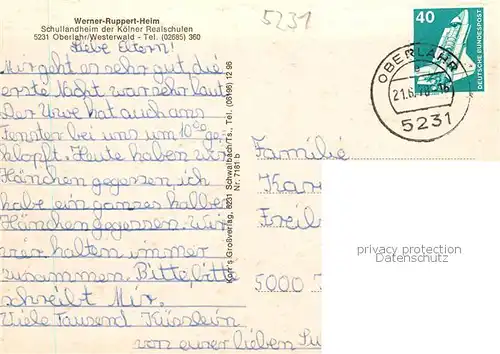 Werner-Ruppert-Heim
Schullandheim der Kölner Realschulen
5231 Oberlahr/Westerwald - Tel. (02685) 360
5231
Liebe Eltern!
Mir geht es sehr gut die
erste Nacht war sehr laut
Der Uwe hat auch ans
Fenster bei uns um 10 ge-
klopft. Heute haben wir
Hänchen gegessen, ich
hab ein ganzes halbes
Hänchen gegessen. Wir
vier halten immer
zusammen. Bitte bitte
schreibt Mir.
Viele Tausend Küsslein
von eurer lieben
Karr's Großverlag, 6231 Schwalbach/Ts., Tel. (06196) 12 96
Nr. 7181 b
40
DEUTSCHE BUNDESPOST
OBERLAHR
21.6.
5231
Familie
Kar
Freil
5000
privacy protection
Datenschutz